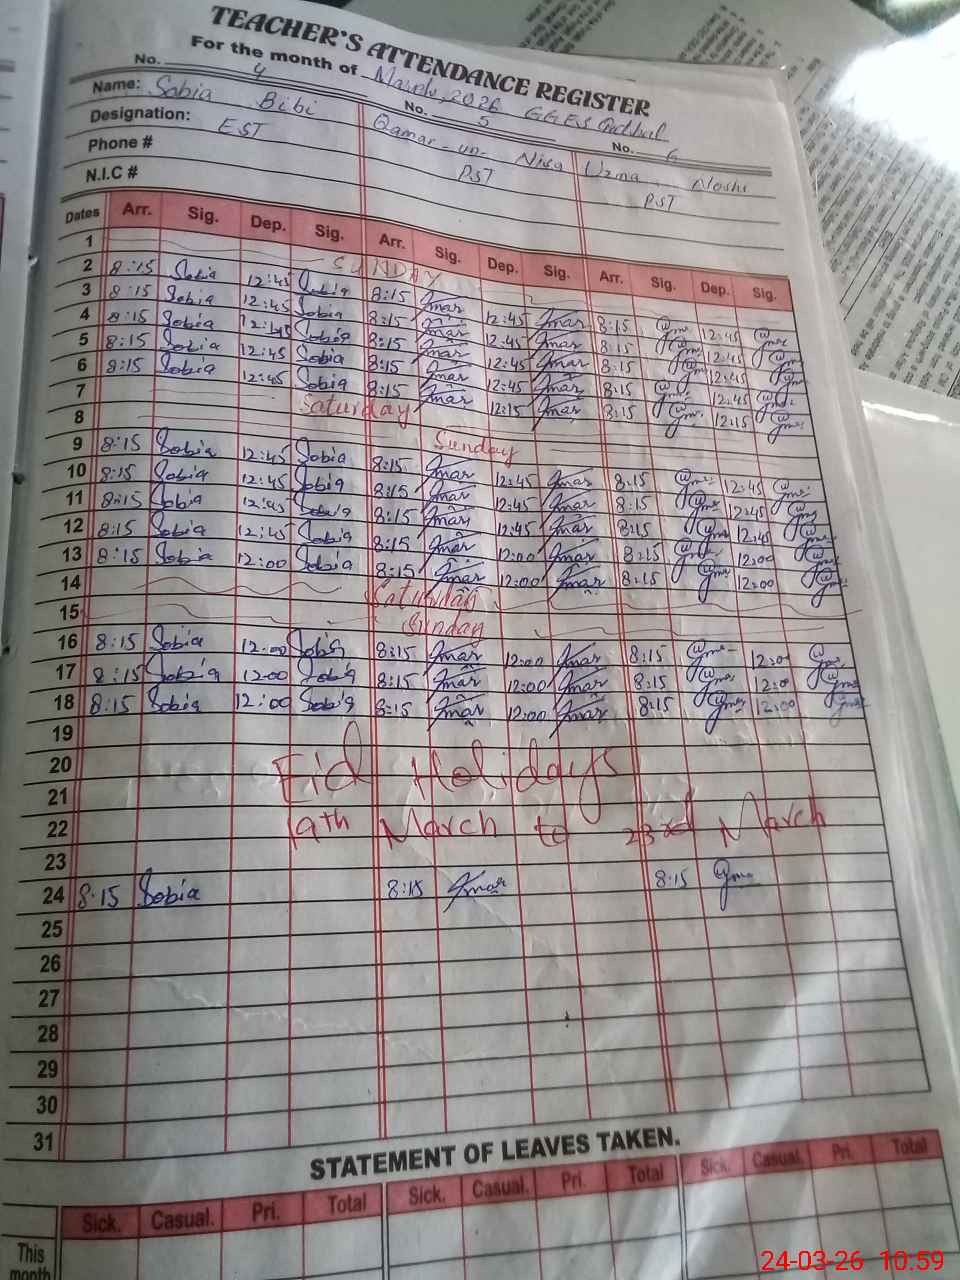 TEACHER'S ATTENDANCE REGISTER
For the month of March, 2026 GGES
No. 4 No. 5 No. 6
Name: Sabia Bibi Qamar-un-Nisa Uzma Noshi
Designation: EST PST PST
Phone #
N.I.C #
Dates Arr. Sig. Dep. Sig. Arr. Sig. Dep. Sig. Arr. Sig. Dep. Sig.
1 SUNDAY
2 8:15 Sobia 12:45 Sobia 8:15 Qmar 12:45 Qmar 8:15 12:45
3 8:15 Sobia 12:45 Sobia 8:15 Qmar 12:45 Qmar 8:15 12:45
4 8:15 Sobia 12:45 Sobia 8:15 Qmar 12:45 Qmar 8:15 12:45
5 8:15 Sobia 12:45 Sobia 8:15 Qmar 12:45 Qmar 8:15 12:45
6 8:15 Sobia 12:45 Sobia 8:15 Qmar 12:15 Qmar 8:15 12:15
7 Saturday
8 Sunday
9 8:15 Sobia 12:45 Sobia 8:15 Qmar 12:45 Qmar 8:15 12:45
10 8:15 Sobia 12:45 Sobia 8:15 Qmar 12:45 Qmar 8:15 12:45
11 8:15 Sobia 12:45 Sobia 8:15 Qmar 12:45 Qmar 8:15 12:45
12 8:15 Sobia 12:45 Sobia 8:15 Qmar 12:00 Qmar 8:15 12:00
13 8:15 Sobia 12:00 Sobia 8:15 Qmar 12:00 Qmar 8:15 12:00
14 Saturday
15 Sunday
16 8:15 Sobia 12:00 Sobia 8:15 Qmar 12:00 Qmar 8:15 12:00
17 8:15 Sobia 12:00 Sobia 8:15 Qmar 12:00 Qmar 8:15 12:00
18 8:15 Sobia 12:00 Sobia 8:15 Qmar 12:00 Qmar 8:15 12:00
19
20 Eid Holidays
21
22 19th March to 23rd March
23
24 8:15 Sobia 8:15 Qmar 8:15
25
26
27
28
29
30
31
STATEMENT OF LEAVES TAKEN.
Sick. Casual. Pri. Total Sick. Casual. Pri. Total Sick. Casual. Pri. Total
This
month
24-03-26 10:59